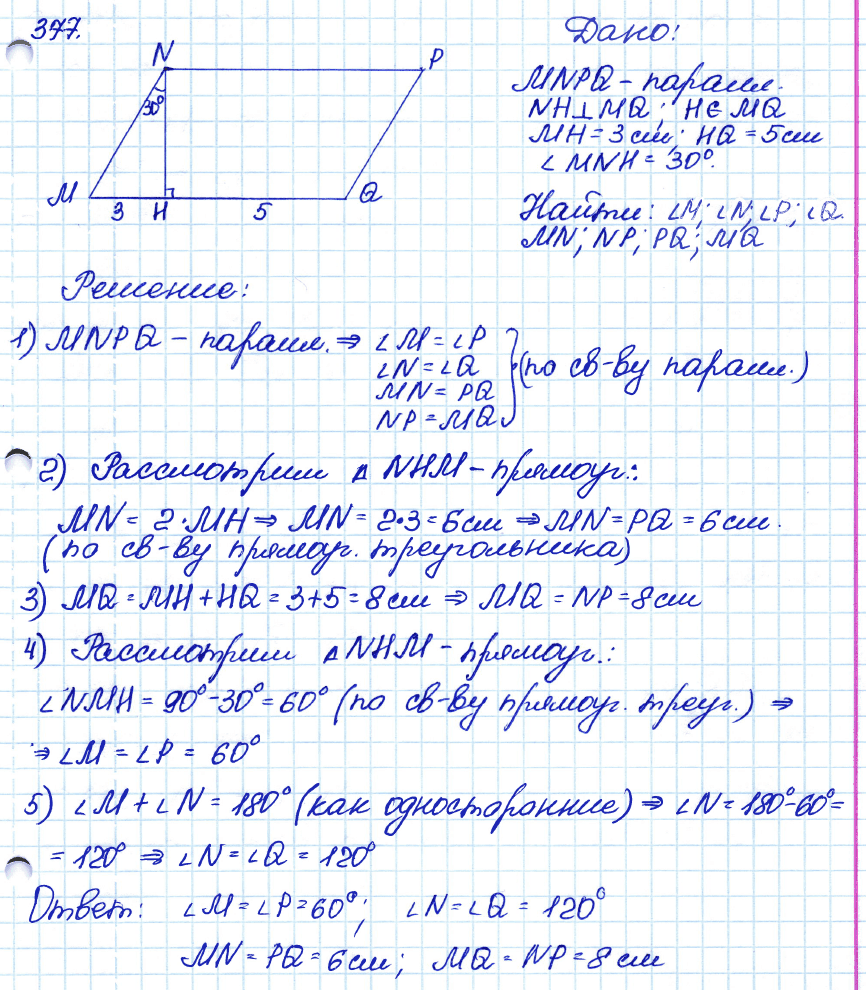 377.
N
P
30°
M
3
H
5
Q
Дано:
MNPQ – паралл.
NH⊥MQ; H∈MQ
MH = 3 см; HQ = 5 см
∠MNH = 30°.
Найти: ∠M; ∠N; ∠P; ∠Q.
MN; NP; PQ; MQ
Решение:
1) MNPQ – паралл. ⇒ ∠M = ∠P
∠N = ∠Q
MN = PQ
NP = MQ
} (по св-ву паралл.)
2) Рассмотрим △ NHM – прямоуг.:
MN = 2·MH ⇒ MN = 2·3 = 6 см ⇒ MN = PQ = 6 см.
(по св-ву прямоуг. треугольника)
3) MQ = MH + HQ = 3+5 = 8 см ⇒ MQ = NP = 8 см
4) Рассмотрим △NHM – прямоуг.:
∠NMH = 90° – 30° = 60° (по св-ву прямоуг. треуг.) ⇒
⇒ ∠M = ∠P = 60°
5) ∠M + ∠N = 180° (как односторанние) ⇒ ∠N = 180°–60° =
= 120° ⇒ ∠N = ∠Q = 120°
Ответ: ∠M = ∠P = 60°; ∠N = ∠Q = 120°
MN = PQ = 6 см; MQ = NP = 8 см